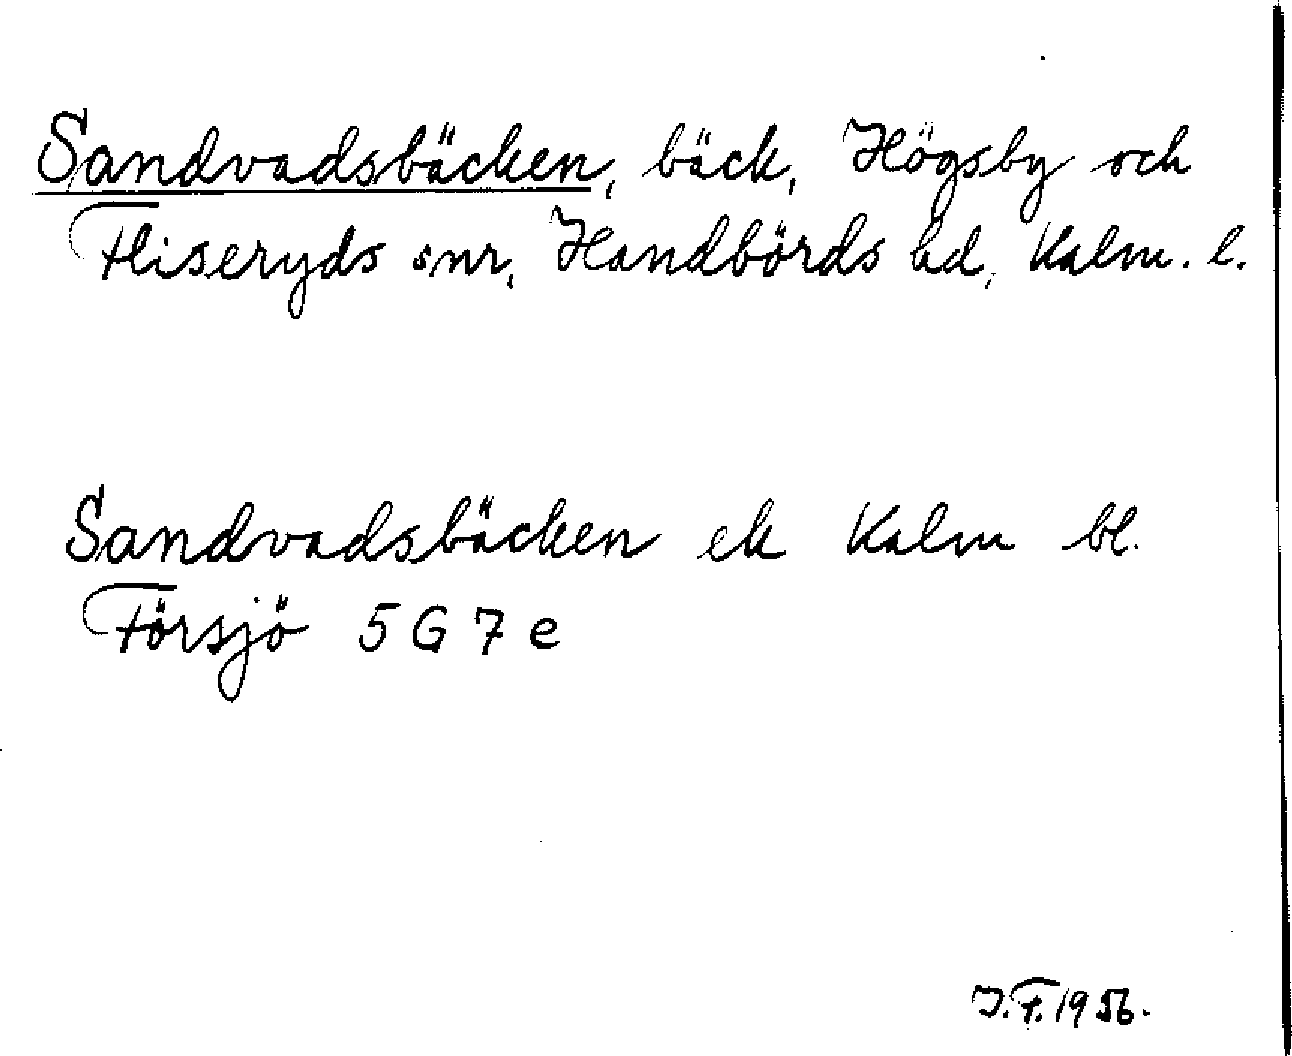 Sandvadsbäcken, bäck, Högsby och
Fliseryds snr, Handbörds hd, Kalm. l.
Sandvadsbäcken ek Kalm bl.
Försjö 5 G 7 e
J.F. 1956.